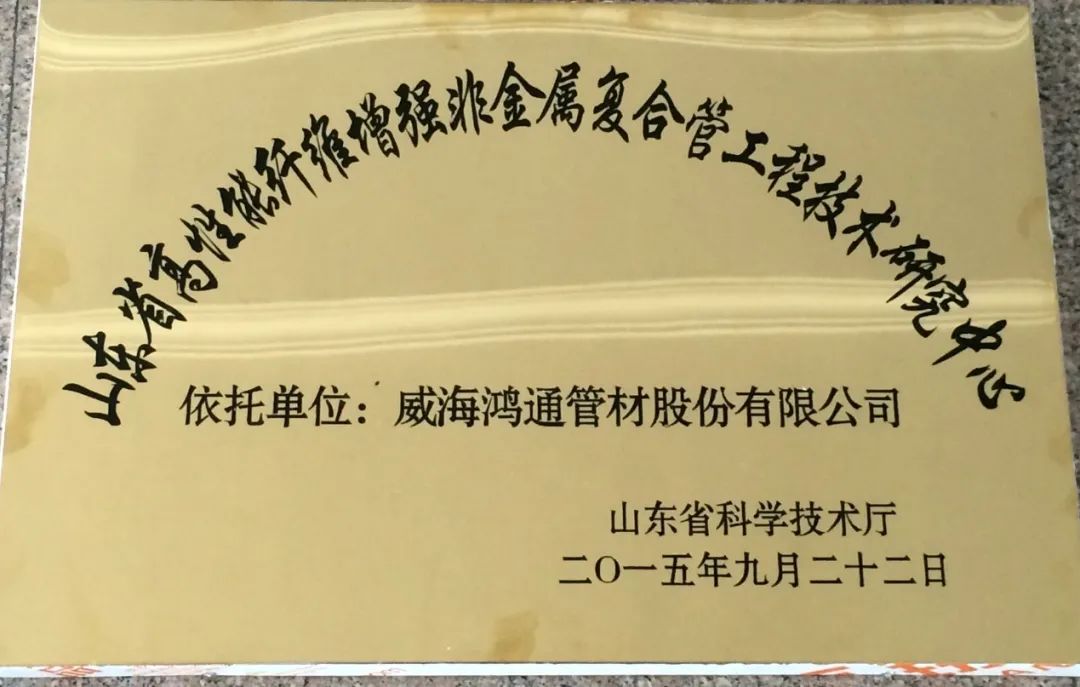 山东省高性能纤维增强非金属复合管工程技术研究中心
依托单位：威海鸿通管材股份有限公司
山东省科学技术厅
二〇一五年九月二十二日